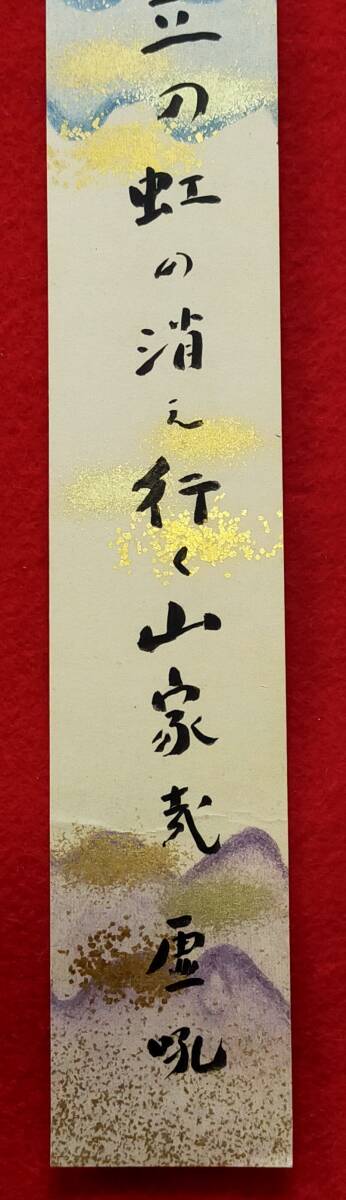 立の虹の消え行く山家哉 虚吼